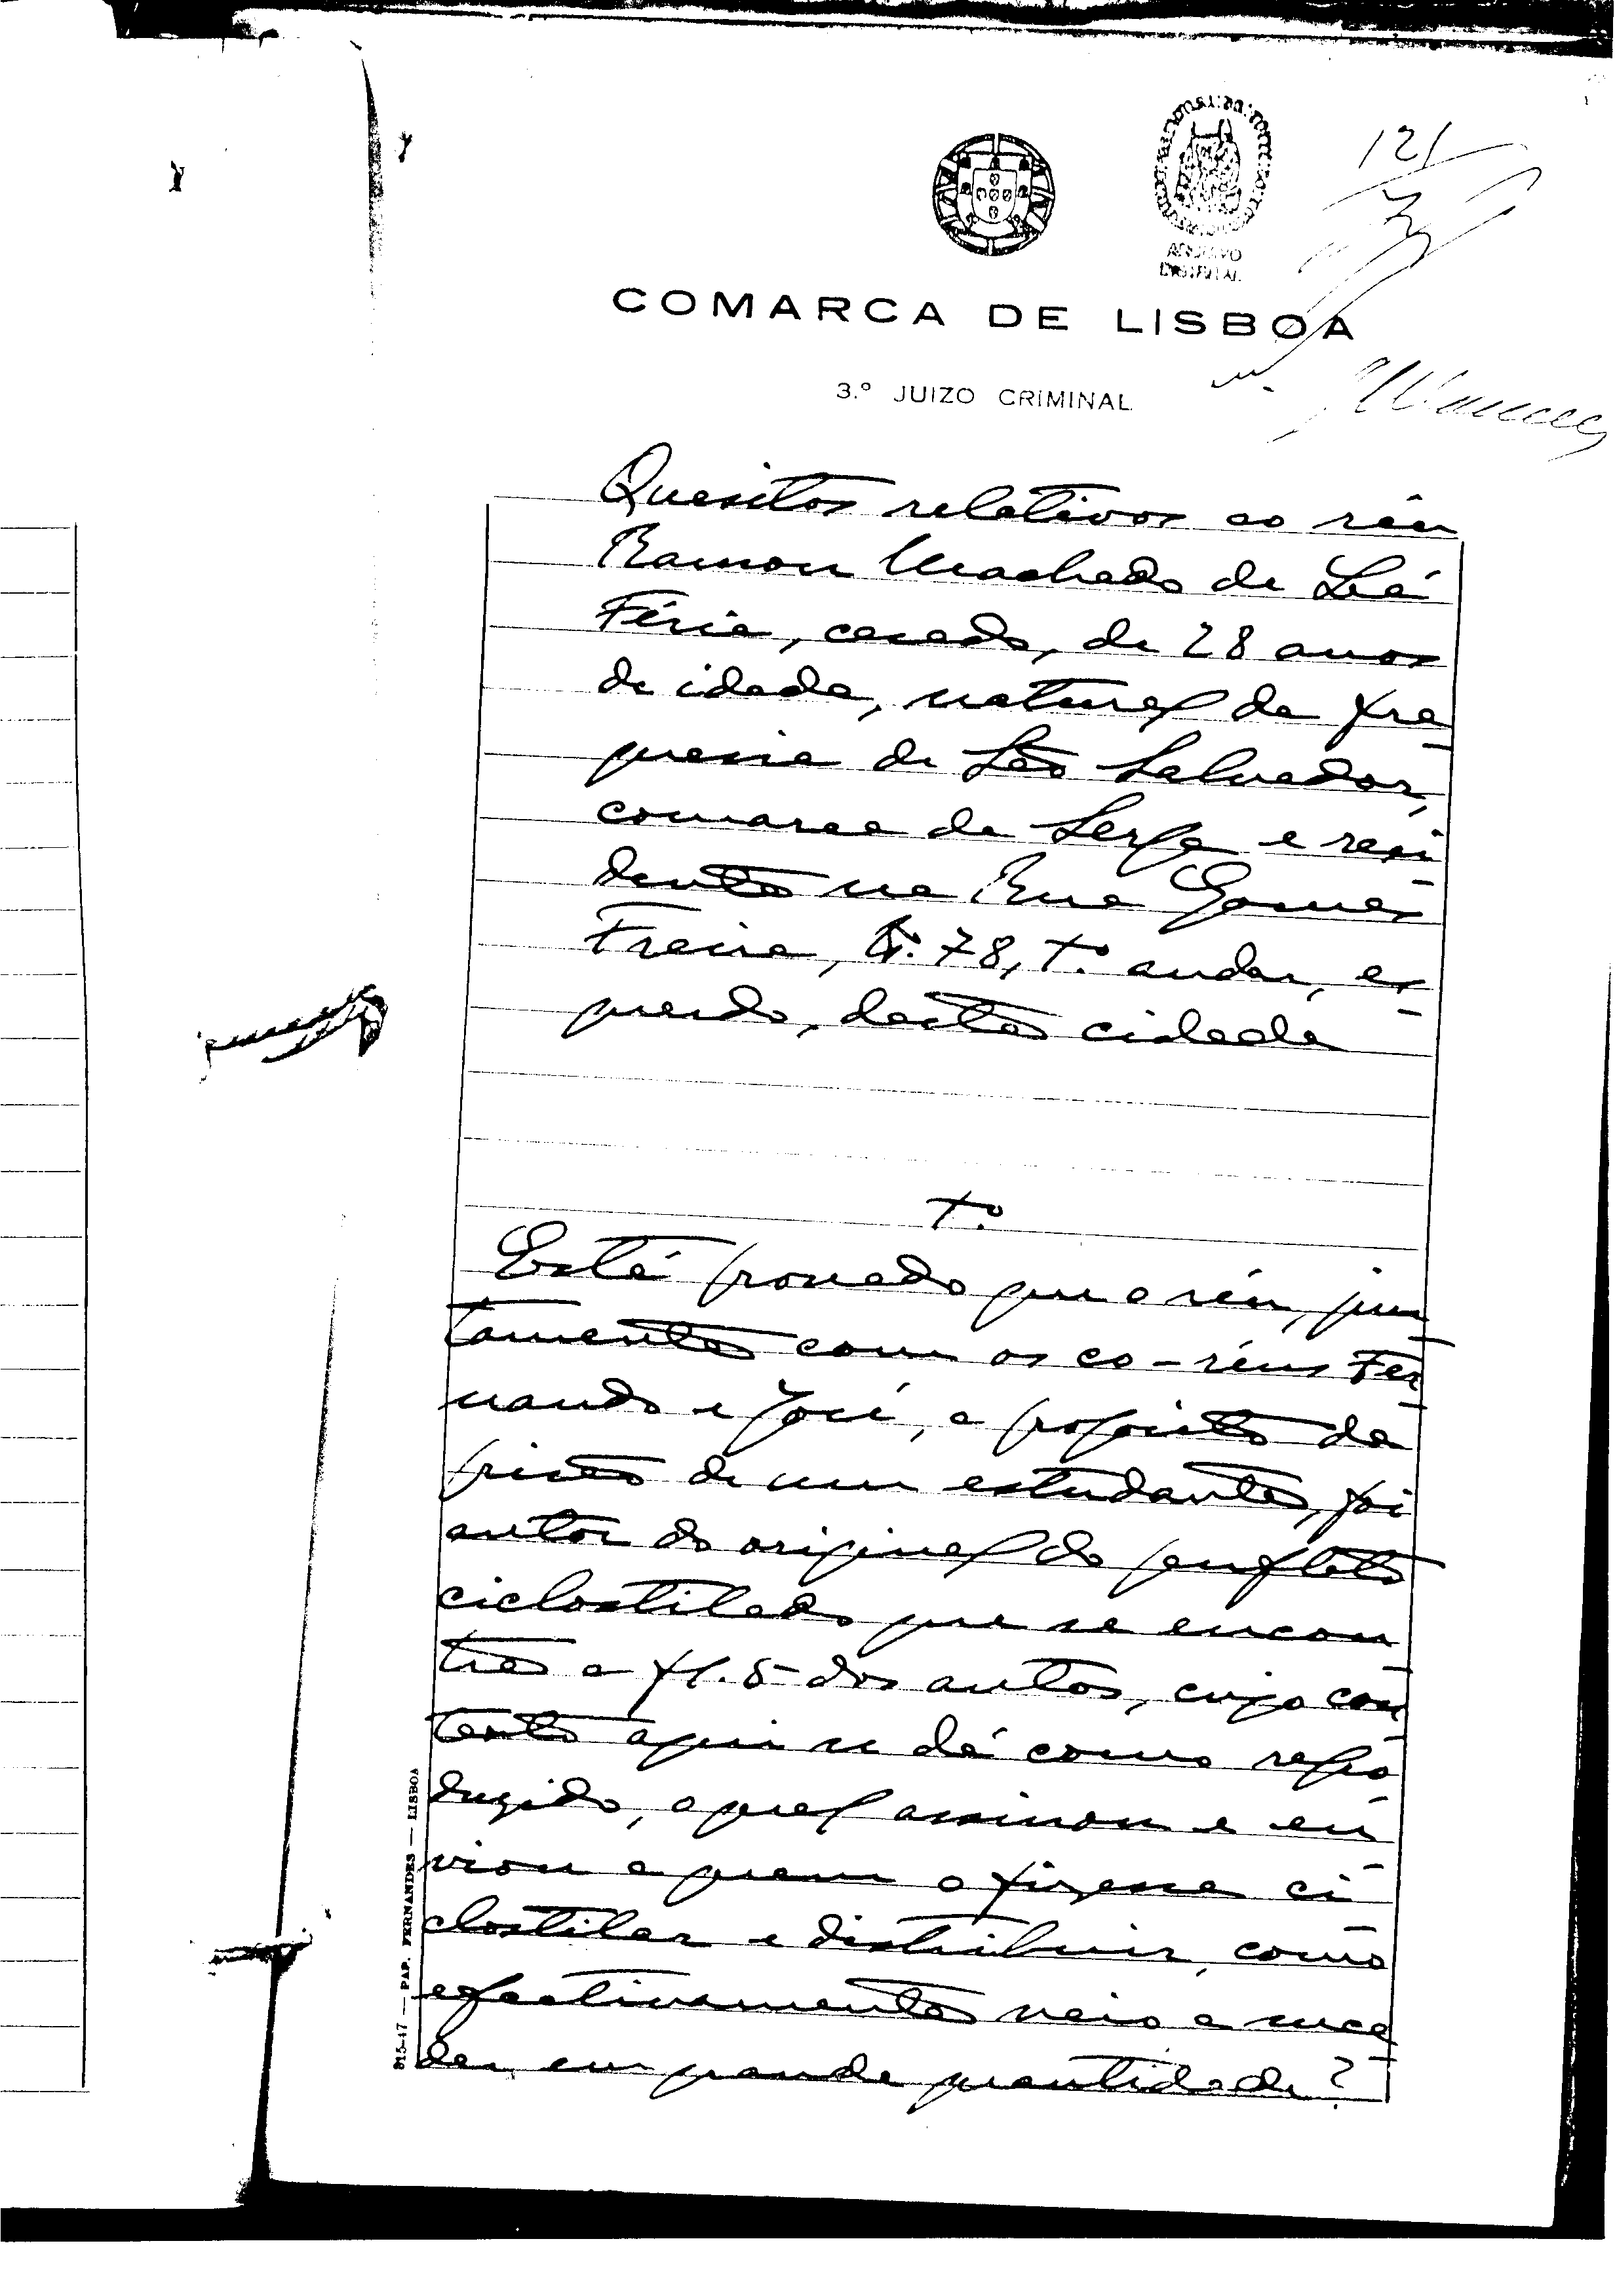 121
ARQUIVO
DISTRITAL
COMARCA DE LISBOA
3.º JUIZO CRIMINAL
Quesitos relativos ao réu
Ramon Machado de Lá
Féria, casado, de 28 anos
de idade, natural da fre
guesia de São Salvador,
comarca de Serpa e resi
dente na Rua Gomes
Freire, N.º 78, 1.º andar, es
querdo, desta cidade
1.º
Está provado que o réu, jun
tamente com os co-réus Fer
nando e José, a propósito da
prisão de um estudante, foi
autor do original do panfleto
ciclostilado que se encon
tra a fl. 5 dos autos, cujo con
teúdo aqui se dá como repro
duzido, o qual assinou e en
viou a quem o fizesse ci
clostilar e distribuir, como
efectivamente veio a suce
der, em grande quantidade?
815-47 — PAP. FERNANDES — LISBOA